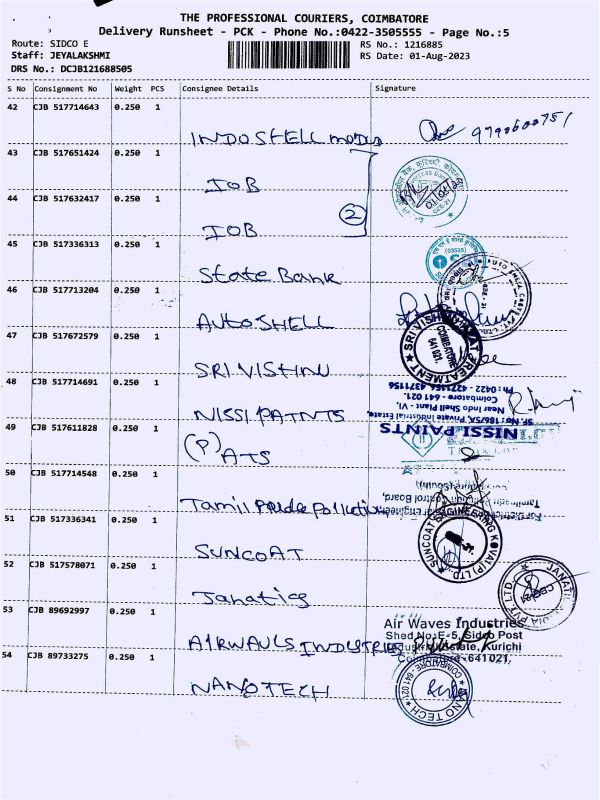 THE PROFESSIONAL COURIERS, COIMBATORE
Delivery Runsheet - PCK - Phone No.:0422-3505555 - Page No.:5
Route: SIDCO E
RS No.: 1216885
Staff: JEYALAKSHMI
RS Date: 01-Aug-2023
DRS No.: DCJB121688505
S No Consignment No Weight PCS Consignee Details Signature
42 CJB 517714643 0.250 1
INDOSHELL
43 CJB 517651424 0.250 1
IOB
44 CJB 517632417 0.250 1
IOB
2
45 CJB 517336313 0.250 1
State Bank
46 CJB 517713204 0.250 1
AUTOSHELL
47 CJB 517672579 0.250 1
SRI VISHNU
COIMBATORE
641 021.
48 CJB 517714691 0.250 1
NISSI PAINTS
NISSI PAINTS
SF.No: 186/5A, Private Industrial Estate
Near Indo Shell Plant - VI,
Coimbatore - 641 021.
49 CJB 517611828 0.250 1
(P) ATS
50 CJB 517714548 0.250 1
Tamil
51 CJB 517336341 0.250 1
SUNCOAT
SUNCOAT ENGINEERING KOVAI (P) LTD
52 CJB 517578071 0.250 1
Janatics
53 CJB 89692997 0.250 1
AIRWAVES INDUSTRIES
Air Waves Industries
Shed No: E-5, Sidco Post
Kurichi
641021.
54 CJB 89733275 0.250 1
NANOTECH
NANO TECH
COIMBATORE - 641 021